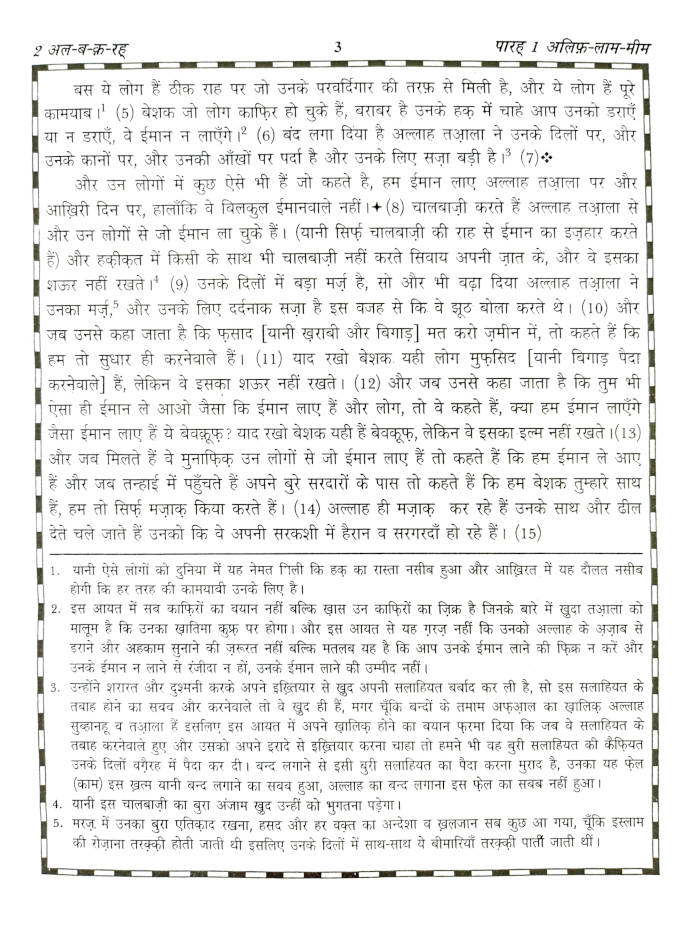 2 अल-ब-क़-रह् 3 पारह् 1 अलिफ़-लाम-मीम
बस ये लोग हैं ठीक राह पर जो उनके परवर्दिगार की तरफ़ से मिली है, और ये लोग हैं पूरे
कामयाब।1 (5) बेशक जो लोग काफ़िर हो चुके हैं, बराबर है उनके हक़ में चाहे आप उनको डराएँ
या न डराएँ, वे ईमान न लाएँगे।2 (6) बंद लगा दिया है अल्लाह तआ़ला ने उनके दिलों पर, और
उनके कानों पर, और उनकी आँखों पर पर्दा है और उनके लिए सज़ा बड़ी है।3 (7)❖
और उन लोगों में कुछ ऐसे भी हैं जो कहते है, हम ईमान लाए अल्लाह तआ़ला पर और
आख़िरी दिन पर, हालाँकि वे बिलकुल ईमानवाले नहीं।✦(8) चालबाज़ी करते हैं अल्लाह तआ़ला से
और उन लोगों से जो ईमान ला चुके हैं। (यानी सिर्फ़ चालबाज़ी की राह से ईमान का इज़्हार करते
हैं) और हक़ीक़त में किसी के साथ भी चालबाज़ी नहीं करते सिवाय अपनी ज़ात के, और वे इसका
शऊर नहीं रखते।4 (9) उनके दिलों में बड़ा मर्ज़ है, सो और भी बढ़ा दिया अल्लाह तआ़ला ने
उनका मर्ज़,5 और उनके लिए दर्दनाक सज़ा है इस वजह से कि वे झूठ बोला करते थे। (10) और
जब उनसे कहा जाता है कि फ़साद [यानी ख़राबी और बिगाड़] मत करो ज़मीन में, तो कहते हैं कि
हम तो सुधार ही करनेवाले हैं। (11) याद रखो बेशक यही लोग मुफ़सिद [यानी बिगाड़ पैदा
करनेवाले] हैं, लेकिन वे इसका शऊर नहीं रखते। (12) और जब उनसे कहा जाता है कि तुम भी
ऐसा ही ईमान ले आओ जैसा कि ईमान लाए हैं और लोग, तो वे कहते हैं, क्या हम ईमान लाएँगे
जैसा ईमान लाए हैं ये बेवक़ूफ़? याद रखो बेशक यही हैं बेवकूफ़, लेकिन वे इसका इल्म नहीं रखते।(13)
और जब मिलते हैं वे मुनाफ़िक़ उन लोगों से जो ईमान लाए हैं तो कहते हैं कि हम ईमान ले आए
हैं और जब तन्हाई में पहुँचते हैं अपने बुरे सरदारों के पास तो कहते हैं कि हम बेशक तुम्हारे साथ
हैं, हम तो सिर्फ़ मज़ाक़ किया करते हैं। (14) अल्लाह ही मज़ाक़ कर रहे हैं उनके साथ और ढील
देते चले जाते हैं उनको कि वे अपनी सरकशी में हैरान व सरगरदाँ हो रहे हैं। (15)
1. यानी ऐसे लोगों को दुनिया में यह नेमत मिली कि हक़ का रास्ता नसीब हुआ और आख़िरत में यह दौलत नसीब
होगी कि हर तरह की कामयाबी उनके लिए है।
2. इस आयत में सब काफ़िरों का बयान नहीं बल्कि ख़ास उन काफ़िरों का ज़िक्र है जिनके बारे में ख़ुदा तआ़ला को
मालूम है कि उनका ख़ातिमा कुफ़्र पर होगा। और इस आयत से यह ग़रज़ नहीं कि उनको अल्लाह के अ़ज़ाब से
डराने और अहकाम सुनाने की ज़रूरत नहीं बल्कि मतलब यह है कि आप उनके ईमान लाने की फ़िक्र न करें और
उनके ईमान न लाने से रंजीदा न हों, उनके ईमान लाने की उम्मीद नहीं।
3. उन्होंने शरारत और दुश्मनी करके अपने इख़्तियार से ख़ुद अपनी सलाहियत बर्बाद कर ली है, सो इस सलाहियत के
तबाह होने का सबब और करनेवाले तो वे ख़ुद ही हैं, मगर चूँकि बन्दों के तमाम अफ़आ़ल का ख़ालिक़ अल्लाह
सुब्हानहू व तआ़ला हैं इसलिए इस आयत में अपने ख़ालिक़ होने का बयान फ़रमा दिया कि जब वे सलाहियत के
तबाह करनेवाले हुए और उसको अपने इरादे से इख़्तियार करना चाहा तो हमने भी वह बुरी सलाहियत की कैफ़ियत
उनके दिलों वग़ैरह में पैदा कर दी। बन्द लगाने से इसी बुरी सलाहियत का पैदा करना मुराद है, उनका यह फ़ेल
(काम) इस ख़त्म यानी बन्द लगाने का सबब हुआ, अल्लाह का बन्द लगाना इस फ़ेल का सबब नहीं हुआ।
4. यानी इस चालबाज़ी का बुरा अंजाम ख़ुद उन्हीं को भुगतना पड़ेगा।
5. मरज़ में उनका बुरा एतिक़ाद रखना, हसद और हर वक़्त का अन्देशा व ख़लजान सब कुछ आ गया, चूँकि इस्लाम
की रोज़ाना तरक़्क़ी होती जाती थी इसलिए उनके दिलों में साथ-साथ ये बीमारियाँ तरक़्क़ी पार्ती जाती थीं।